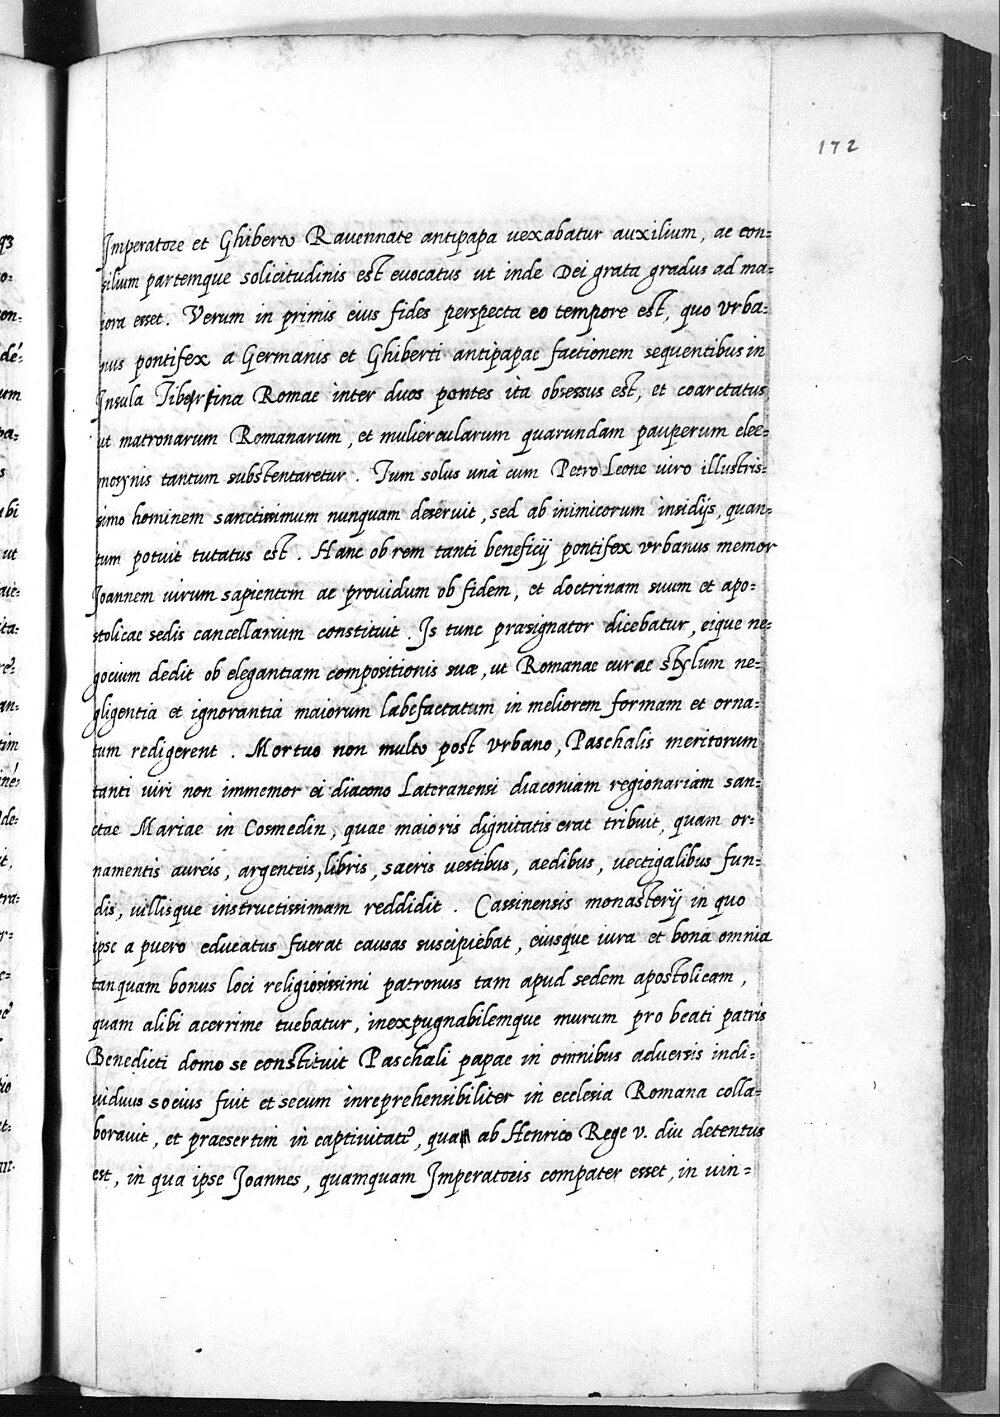 172
Imperatore et Ghiberto Ravennate antipapa vexabatur auxilium, ac con=
silium partemque solicitudinis est evocatus ut inde Dei grata gradus ad ma=
iora esset. Verum in primis eius fides perspecta eo tempore est, quo vrba=
nus pontifex a Germanis et Ghiberti antipapae factionem sequentibus in
Insula Tibertina Romae inter duos pontes ita obsessus est, et coarctatus
ut matronarum Romanarum, et muliercularum quarundam pauperum elee=
mosynis tantum substentaretur. Tum solus unà cum Petro Leone viro illustris=
simo hominem sanctissimum nunquam deseruit, sed ab inimicorum insidijs, quan=
tum potuit tutatus est. Hanc ob rem tanti beneficij pontifex vrbanus memor
Joannem uirum sapientem ac prouidum ob fidem, et doctrinam suum et apo=
stolicae sedis cancellarium constituit. Is tunc prasignator dicebatur, eique ne=
gocium dedit ob elegantiam compositionis suæ, ut Romanae curae stylum ne=
gligentia et ignorantia maiorum labefactatum in meliorem formam et orna=
tum redigerent. Mortuo non multo post vrbano, Paschalis meritorum
tanti uiri non immemor ei diacono Lateranensi diaconiam regionariam san=
ctae Mariae in Cosmedin, quae maioris dignitatis erat tribuit, quam or=
namentis aureis, argenteis, libris, sacris vestibus, aedibus, vectigalibus fun=
dis, uillisque instructissimam reddidit. Cassinensis monasterij in quo
ipse a puero educatus fuerat causas suscipiebat, eiusque iura et bona omnia
tanquam bonus loci religiosissimi patronus tam apud sedem apostolicam,
quam alibi acerrime tuebatur, inexpugnabilemque murum pro beati patris
Benedicti domo se constituit Paschali papae in omnibus adversis indi=
uiduus socius fuit et secum inreprehensibiliter in ecclesia Romana colla=
borauit, et praesertim in captivitate, qua ab Henrico Rege v. diu detentus
est, in qua ipse Joannes, quamquam Imperatoris compater esset, in uin=